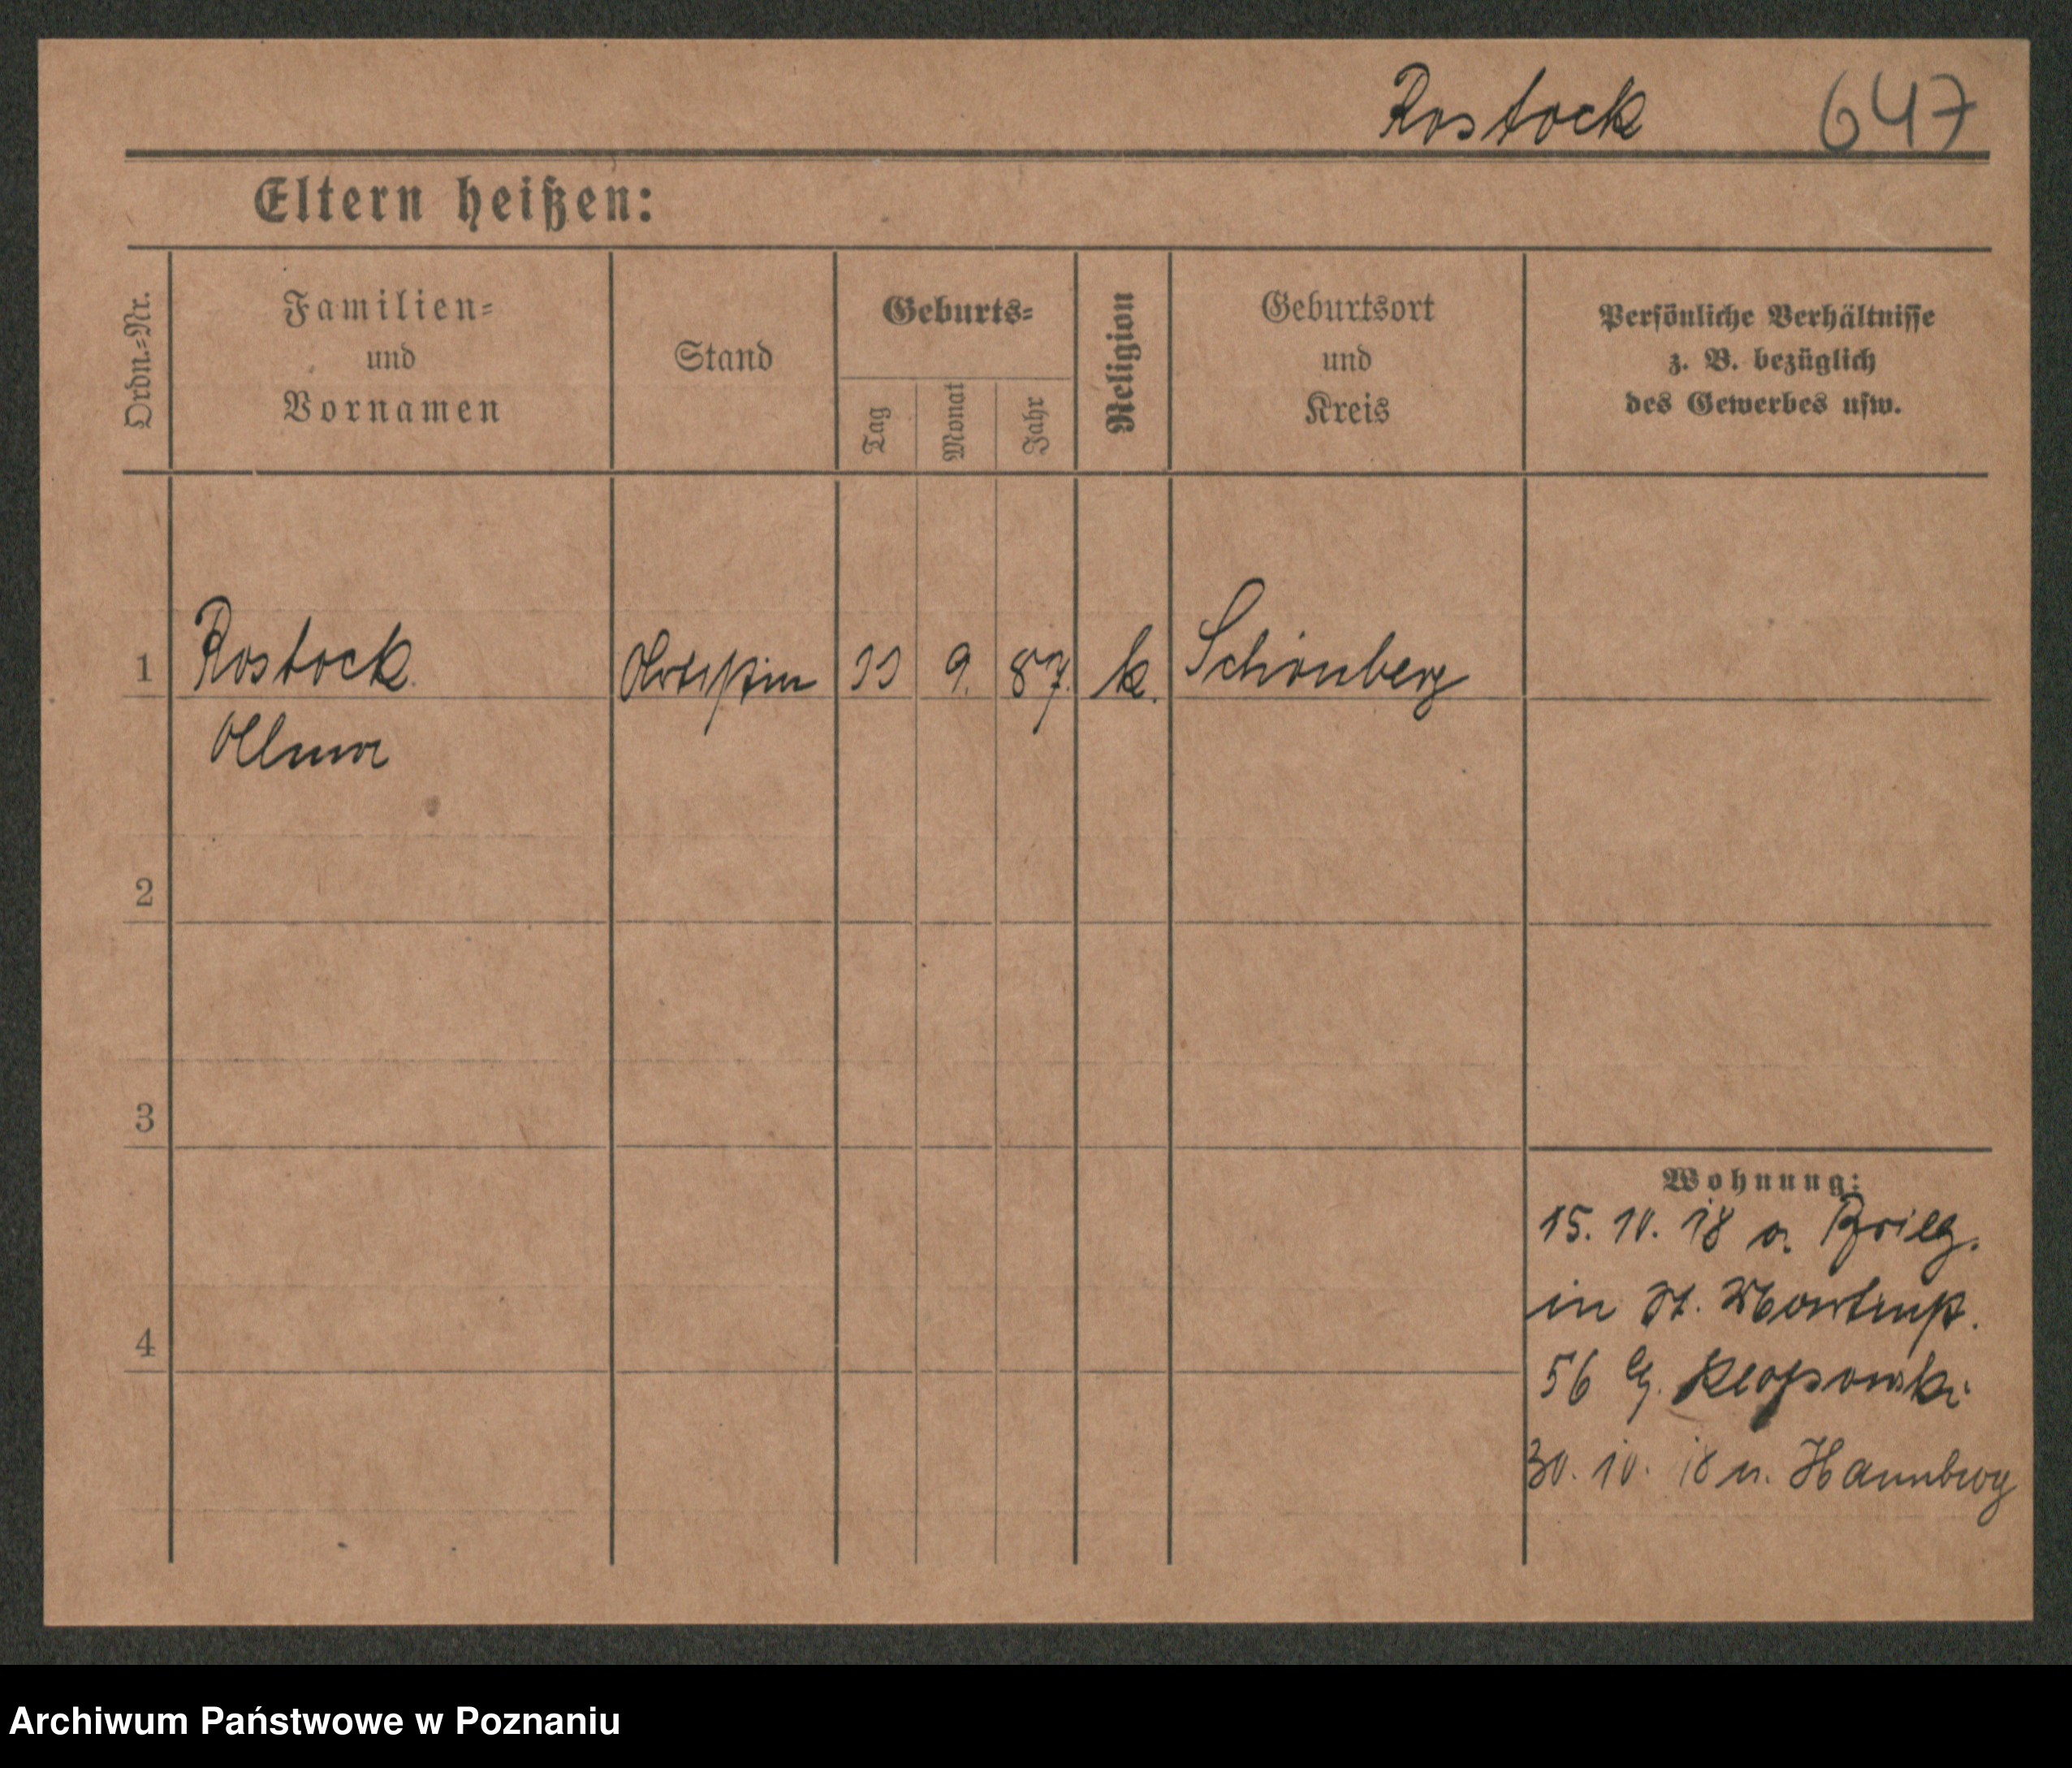 Rostock 647
Eltern heißen:
Ordn.=Nr.
Familien=
und
Vornamen
Stand
Geburts=
Tag
Monat
Jahr
Religion
Geburtsort
und
Kreis
Persönliche Verhältnisse
z. B. bezüglich
des Gewerbes usw.
1 Rostock Artistin 9. 87. k. Schönberg
Alma
2
3
4
Wohnung:
15. 10. 18 a. Brieg.
in St. Martinstr.
56 b.
30. 10. 18 n. Hamburg
Archiwum Państwowe w Poznaniu